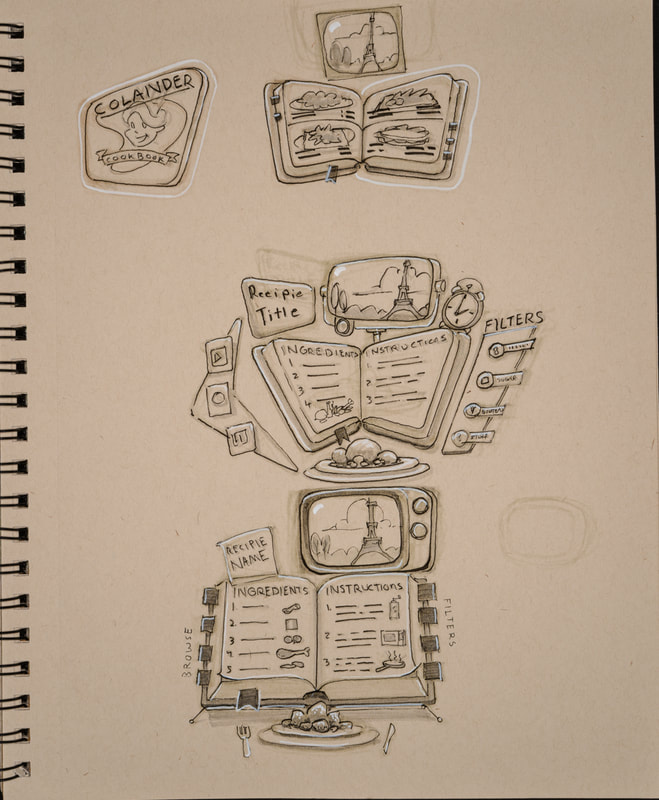 COLANDER
COOKBOOK
Recipie
Title
INGREDIENTS
1
2
3
4
INSTRUCTIONS
1.
2.
3.
FILTERS
RECIPIE
NAME
INGREDIENTS
1.
2.
3
4
5
INSTRUCTIONS
1.
2
3
BROWSE
FILTERS